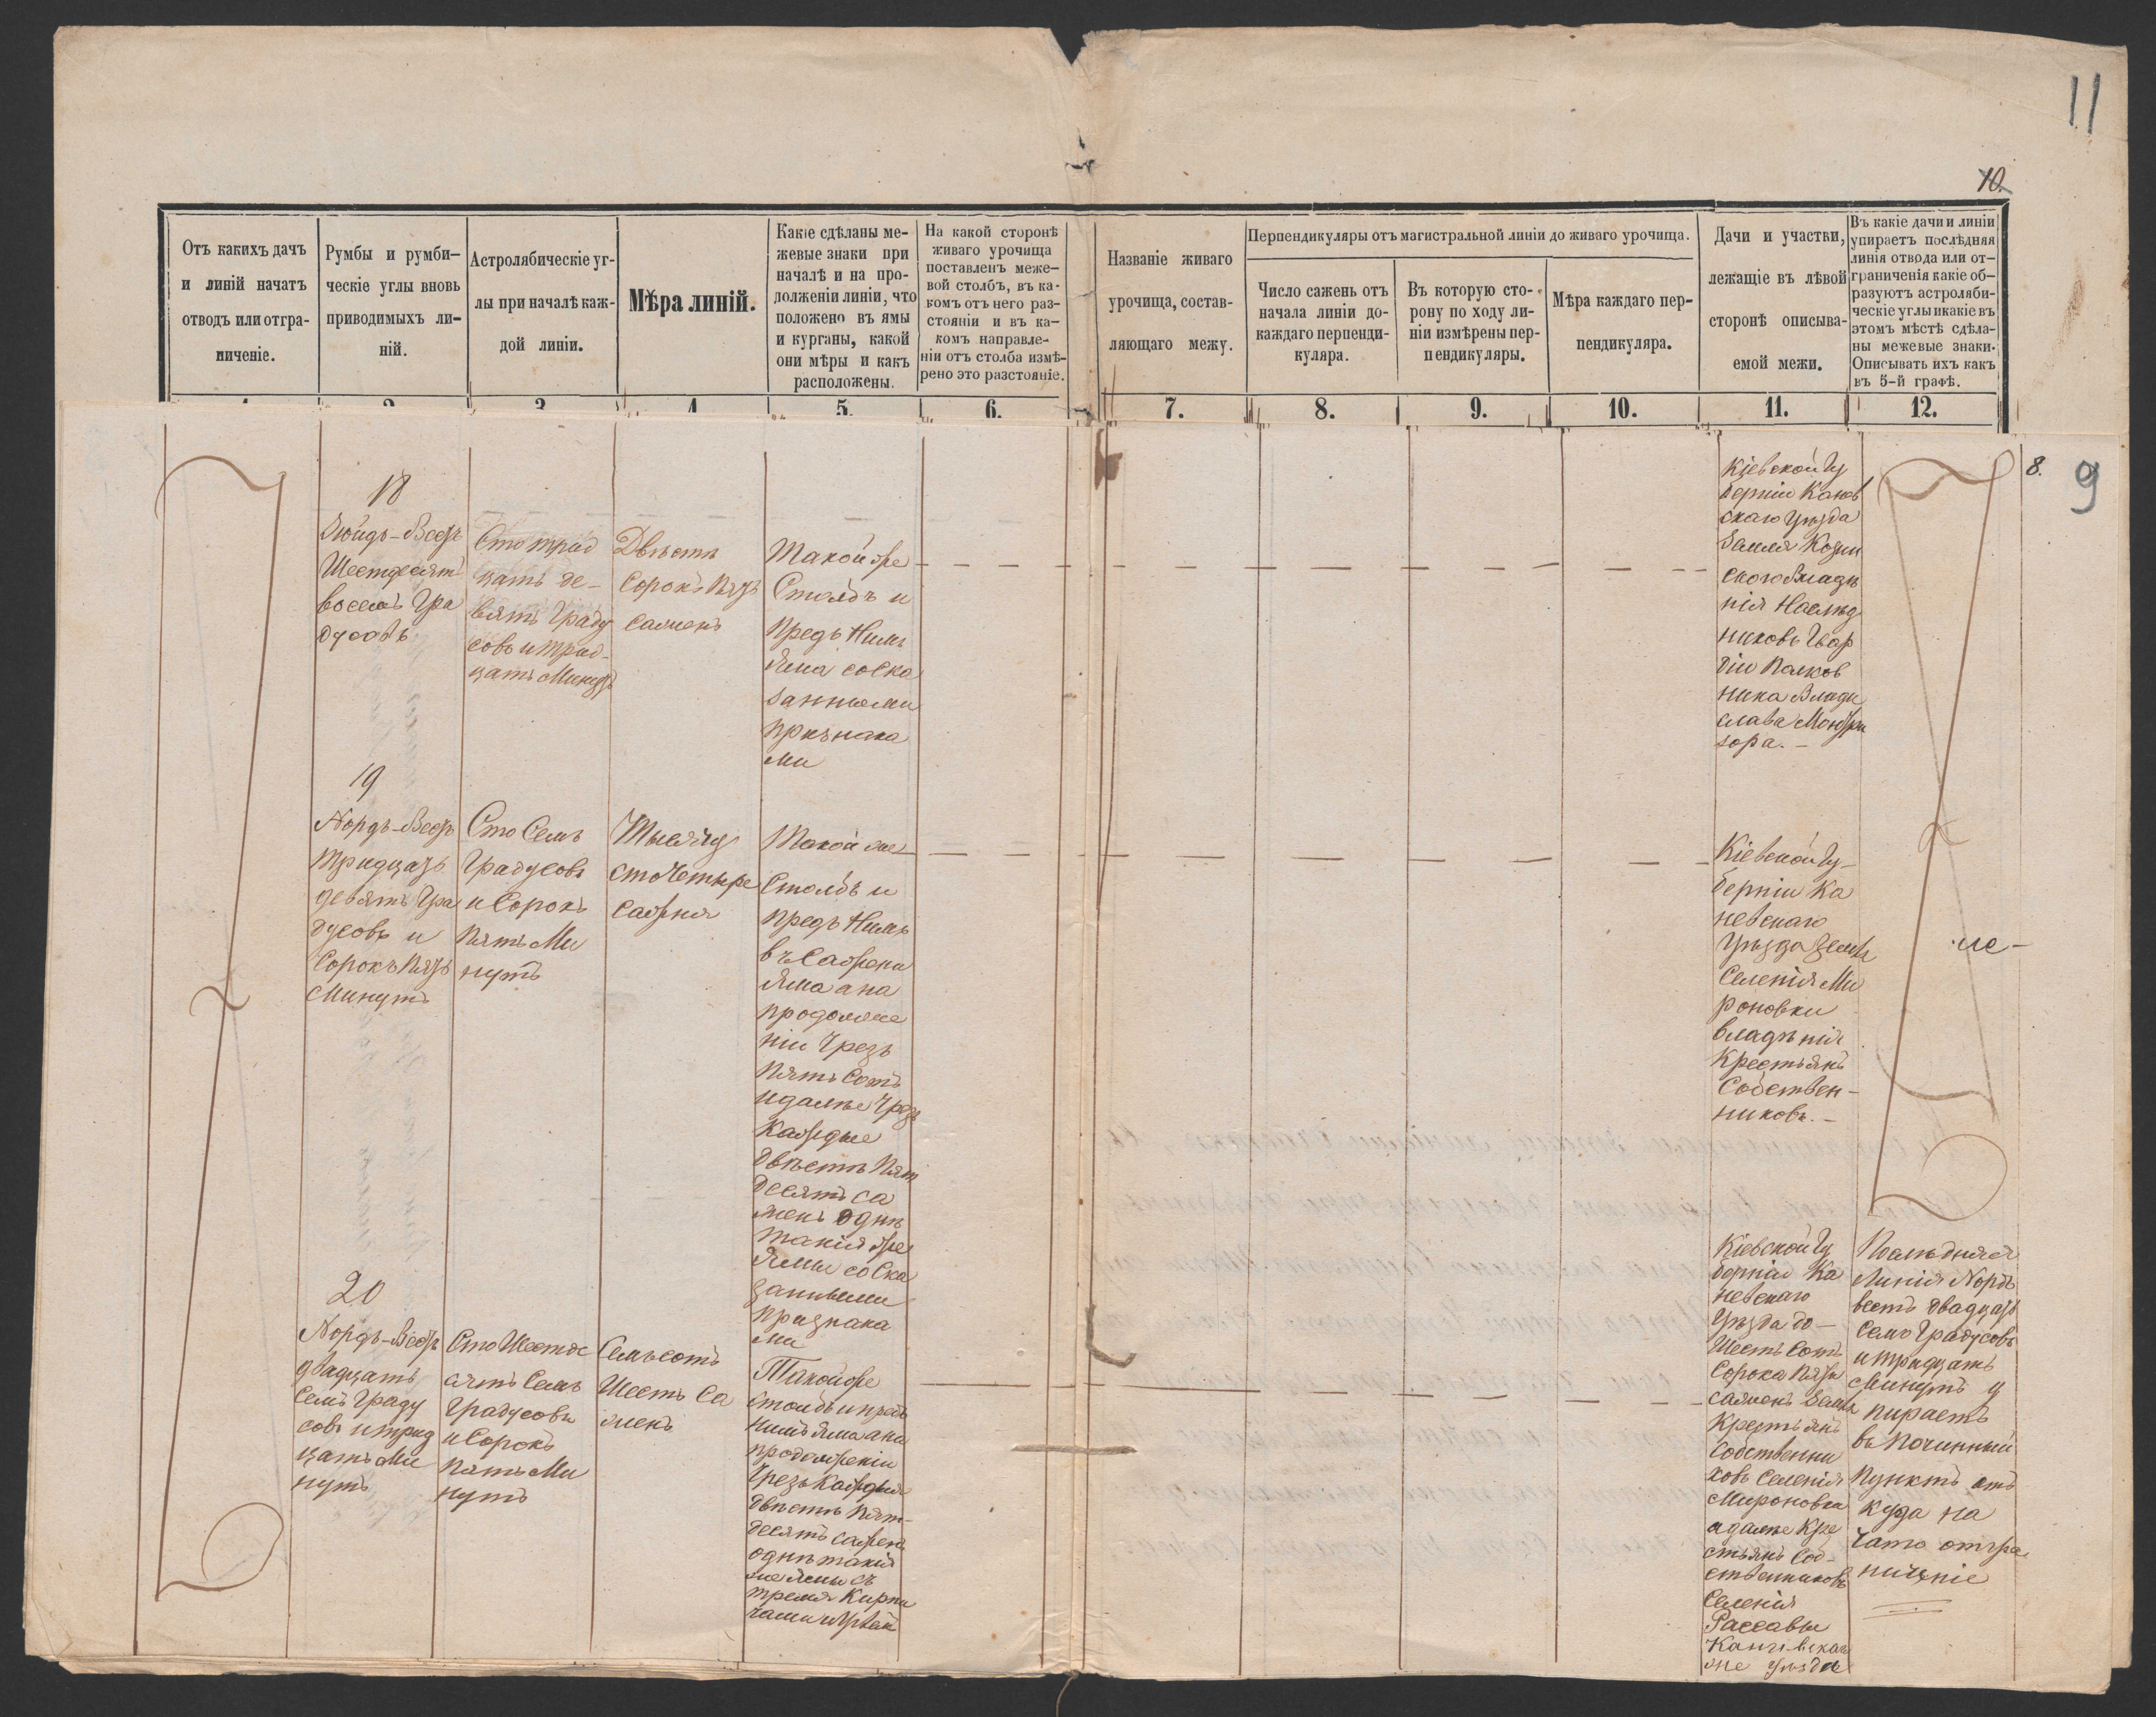 11
10.
Отъ какихъ дачъ
и линій начатъ
отводъ или отгра-
ниченіе.
Румбы и румби-
ческіе углы вновь
приводимыхъ ли-
ній.
Астролябическіе уг-
лы при началѣ каж-
дой линіи.
Мѣра линій.
Какіе сдѣланы ме-
жевые знаки при
началѣ и на про-
долженіи линіи, что
положено въ ямы
и курганы, какой
они мѣры и какъ
расположены.
На какой сторонѣ
живаго урочища
поставленъ меже-
вой столбъ, въ ка-
комъ отъ него раз-
стояніи и въ ка-
комъ направле-
ніи отъ столба измѣ-
рено это разстояніе.
Названіе живаго
урочища, состав-
ляющаго межу.
Перпендикуляры отъ магистральной линіи до живаго урочища.
Число сажень отъ
начала линіи до
каждаго перпенди-
куляра.
Въ которую сто-
рону по ходу ли-
ніи измѣрены пер-
пендикуляры.
Мѣра каждаго пер-
пендикуляра.
Дачи и участки,
лежащіе въ лѣвой
сторонѣ описыва-
емой межи.
Въ какіе дачи и линіи
упираетъ послѣдняя
линія отвода или от-
граниченія какіе об-
разуютъ астроляби-
ческіе углы и какіе въ
этомъ мѣстѣ сдѣла-
ны межевые знаки.
Описывать ихъ какъ
въ 5-й графѣ.
5.
6.
7.
8.
9.
10.
11.
12.
8.
9
18
Зюйдъ-Вестъ
Шестдесятъ
восемь Гра
дусовъ
Сто трид
цать де-
вять Граду
совъ и трид-
цать Минутъ
Двѣсти
Сорокъ Пять
сажень
Такой же
Столбъ и
предъ Нимъ
Яма со ска
занными
признака
ми
Кіевской Гу
берніи Канев
скаго Уѣзда
Земля Козин
ского Владѣ
нія Наслѣд
никовъ Гвар
діи Полков
ника Влади
слава Монтре
зора. -
19
Нордъ-Вестъ
тридцать
девять Гра
дусовъ и
Сорокъ Пять
Минутъ
Сто Семь
Градусовъ
и Сорокъ
Пять Ми
нутъ
Тысяча
сто Четыре
Сажня
Такой же
Столбъ и
предъ Нимъ
въ Сажени
Яма а на
продолже
ніи Чрезъ
Пять Сотъ
и далѣе Чрезъ
Каждые
двѣсти Пять
десятъ са
жень однѣ
такія же
Ямы со Ска
занными
признака
ми
Кіевской Гу-
берніи Ка
невскаго
Уѣзда Земля
Селенія Ми
роновки
владѣнія
Крестьянъ
Собствен-
никовъ. -
20
Нордъ-Вестъ
двадцать
Семь Граду
совъ и трид
цать Ми
нутъ
Сто Шестде
сятъ Семь
Градусовъ
и Сорокъ
Пять Ми
нутъ
Семьсотъ
Шесть Са
жень
Такой же
столбъ и предъ
Нимъ Яма а на
продолженіи
Чрезъ Каждыя
двѣсти Пять-
десятъ сажень
однѣ такія
же ямы съ
тремя Кирпи
Кіевской Гу
берніи Ка
невскаго
Уѣзда до-
Шесть Сотъ
Сорока Пяти
сажень Земля
Крестьянъ
Собственни
ковъ Селенія
Мироновки
а далѣе Кре
стьянъ Соб-
ственниковъ
Селенія
Рассавы
Каневскаго
же уѣзда
Послѣдняя
Линія Нордъ
вестъ двадцать
Семь Градусовъ
и тридцать
Минутъ у
пираетъ
въ Починный
Пунктъ отъ
куда на
чато отгра
ниченіе